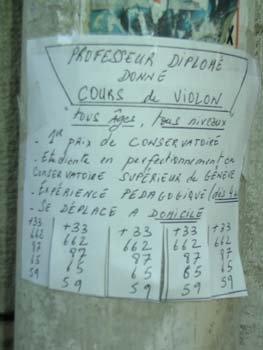 PROFESSEUR DIPLOMÉ
DONNE
COURS de VIOLON
tous Âges, tous niveaux
- 1er prix de CONSERVATOIRE
- Etudiante en perfectionnement au
CONSERVATOIRE SUPERIEUR de GENEVE
- EXPÉRIENCE PEDAGOGIQUE (dès 4
- SE DÉPLACE A DOMICILE
+33 +33 +33 +33 +33
662 662 662 662 662
87 87 87 87 87
65 65 65 65 65
59 59 59 59 59